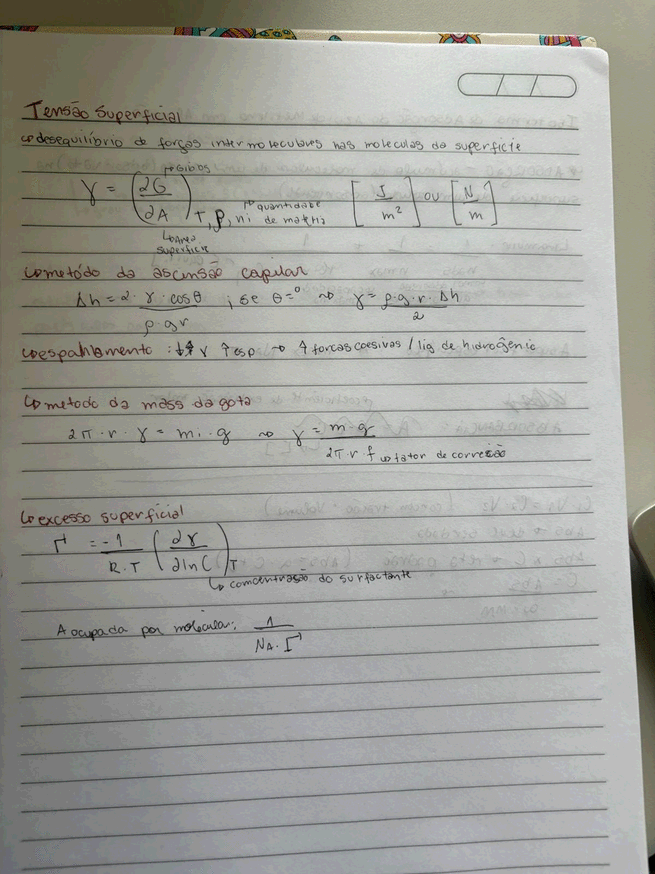 Tensão Superficial
↳ desequilíbrio de forças intermoleculares nas moleculas da superficie
↱ Gibbs
γ = (∂G / ∂A) T, P, ni
↱ quantidade de matéria
[J / m²] ou [N / m]
↳ Area superficie
↳ metódo da ascensão capilar
Δh = 2 · γ · cosθ / ρ · g r ; se θ = 0 ⇝ γ = ρ · g · r · Δh / 2
↳ espahlamento : ↓ γ ↑ esp ⇝ ↑ forças coesivas / lig de hidrogênio
↳ metodo da mass da gota
2π · r · γ = mi · g ⇝ γ = m · g / 2π · r f
↳ fator de correção
↳ excesso superficial
Γ = -1 / R · T (∂γ / ∂ln C) T
↳ concentração do surfactante
A ocupada por molécular: 1 / NA · Γ